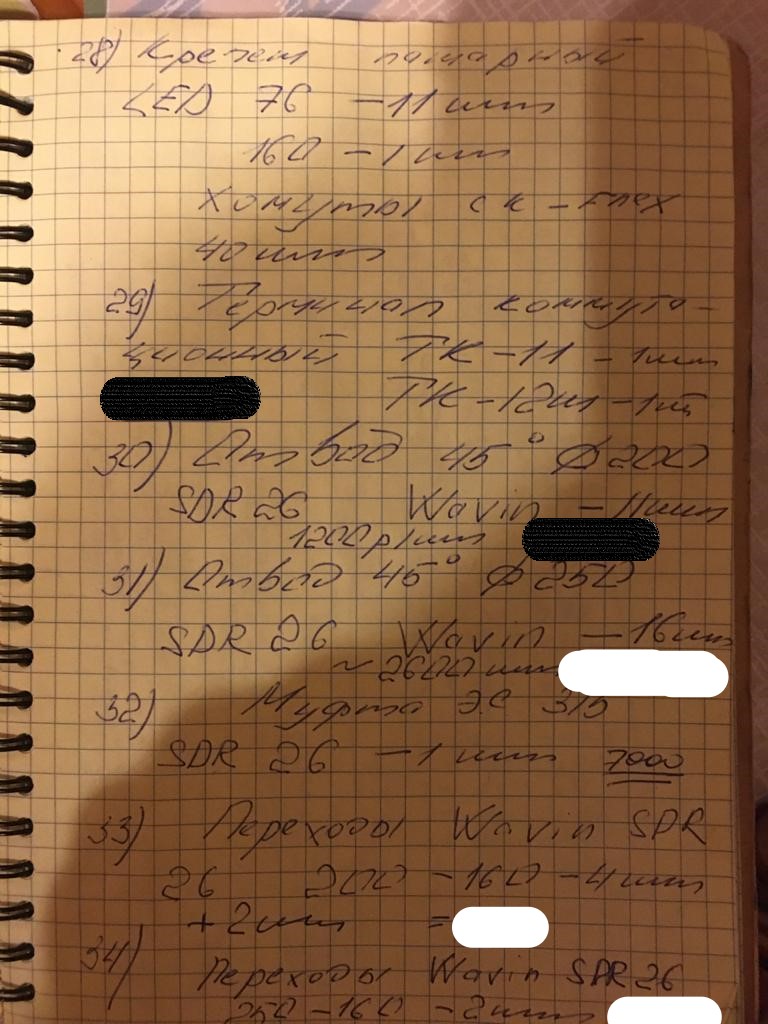 28) Крепеж пожарный
LED 76 - 11 шт
160 - 1 шт
Хомуты ск-флех
40 шт
29) Терминал коммута-
ционный ТК-11 - 1шт
ТК-12ш - 1шт
30) Отвод 45° Ø200
SDR 26 Wavin - 11шт
1200р/шт
31) Отвод 45° Ø250
SDR 26 Wavin - 16шт
~ 2600 шт
32) Муфта ЭС 315
SDR 26 - 1 шт 7000
33) Переходы Wavin SDR
26 200 - 160 - 4шт
+ 2шт =
34) Переходы Wavin SDR 26
250 - 160 - 2шт